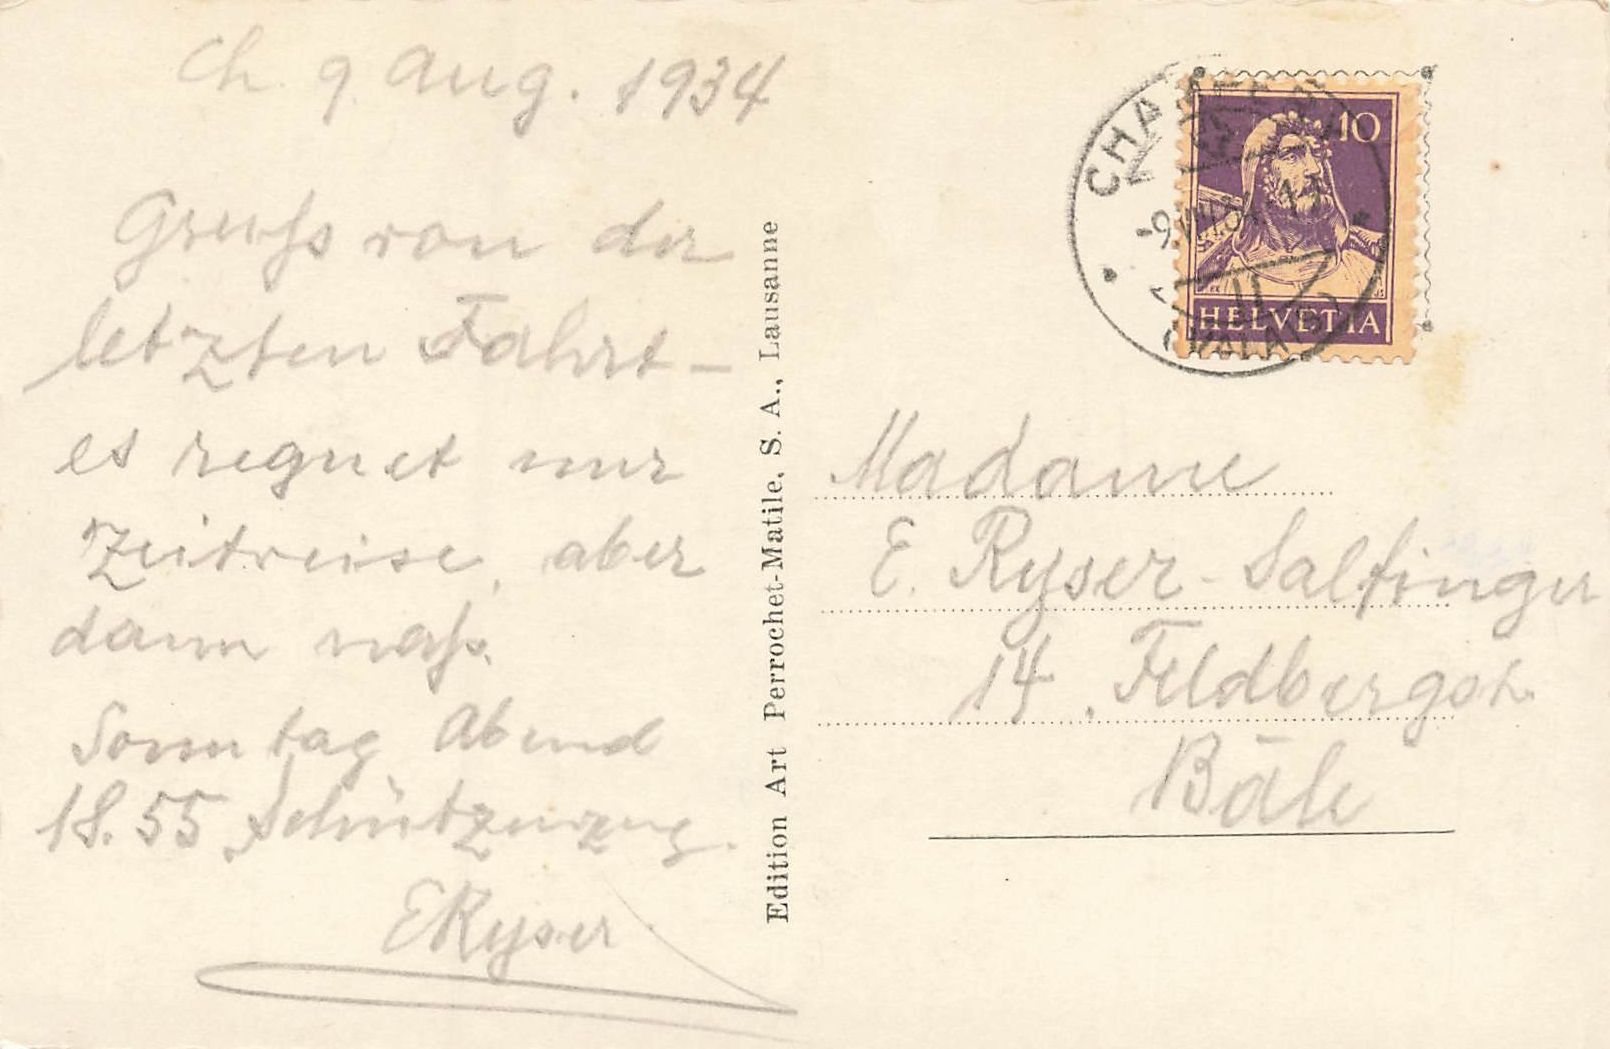 Ch. 9. Aug. 1934
Gruss von der
letzten Fahrt –
es regnet nur
Zeitweise, aber
dann nass.
Sonntag Abend
18.55 Schützenzug.
ERyser
Edition Art Perrochet-Matile, S. A., Lausanne
-9.VIII.34
10
HELVETIA
Madame
E. Ryser-Salfinger
14. Feldbergstr.
Bâle